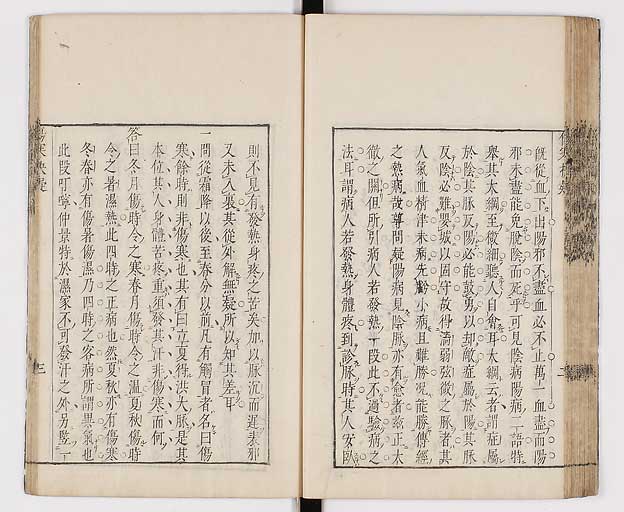 既從血下出陽邪不盡血必不止萬一血盡而陽
邪未盡能免脫陰而死乎可見陰病陽病二語特
舉其大綱至微細聽人自會耳大綱云者謂症屬
於陰其脉反陽必能鼓勇以却敵症屬於陽其脉
反陰必難嬰城以固守故得濇弱弦微之脉者其
人氣血精津未病先虧小病且難勝況能勝傳經
之熱病哉尊問疑陽病見陰脉亦有愈者茲正大
徹之關但所引病人若發熱一段此不過驗病之
法耳謂病人若發熱身體疼到診脉時其人安臥
則不見有發熱身疼之苦矣加以脉沉而遲表邪
又未入裏其從外解無疑所以知其差耳
一問從霜降以後至春分以前凡有觸冒者名曰傷
寒餘時則非傷寒也其有曰立夏得洪大脉是其
本位其人身體苦疼重須發其汗非傷寒而何
答曰冬月傷時令之寒春月傷時令之溫夏秋傷時
令之暑濕熱此四時之正病也然夏秋亦有傷寒
冬春亦有傷暑傷濕乃四時之客病所謂異氣也
此段叮嚀仲景特於濕家不可發汗之外另竪一
三